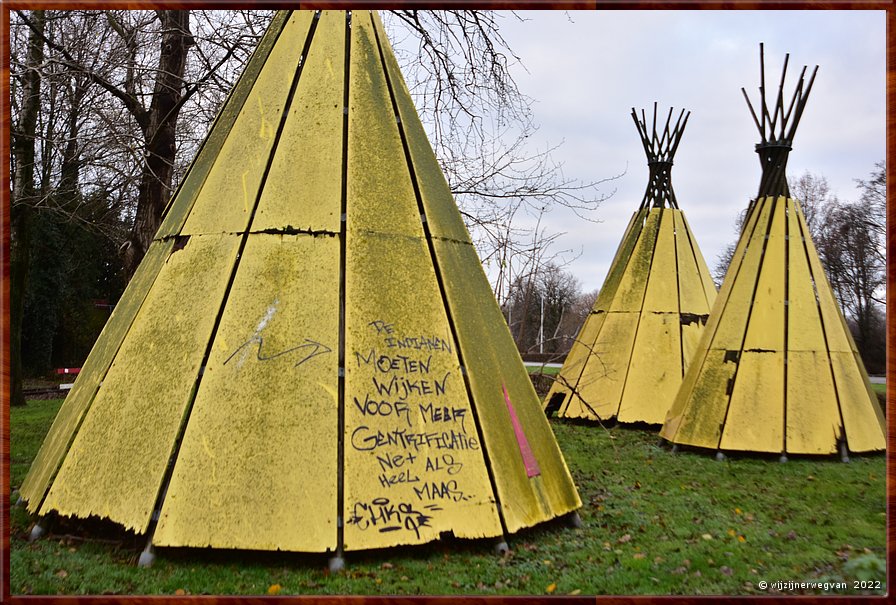 DE
INDIANEN
MOETEN
WIJKEN
VOOR MEER
GENTRIFICATIE
NET ALS
HEEL
MAAS..
© wijzijnerwegvan 2022